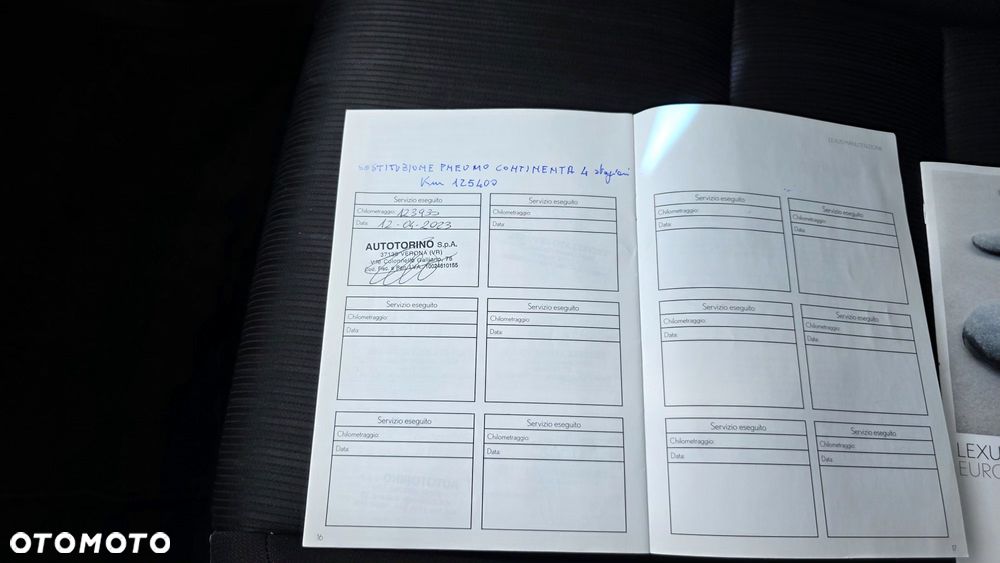 LEXUS MANUTENZIONE
SOSTITUZIONE PNEUMO CONTINENTA 4 stagioni
Km 125400
Servizio eseguito
Chilometraggio: 123933
Data: 12-04-2023
AUTOTORINO S.p.A.
37139 VERONA (VR)
Viale Colonnello Galliano, 75
Servizio eseguito
Chilometraggio:
Data:
Servizio eseguito
Chilometraggio:
Data:
Servizio eseguito
Chilometraggio:
Data:
Servizio eseguito
Chilometraggio:
Data:
Servizio eseguito
Chilometraggio:
Data:
Servizio eseguito
Chilometraggio:
Data:
Servizio eseguito
Chilometraggio:
Data:
Servizio eseguito
Chilometraggio:
Data:
Servizio eseguito
Chilometraggio:
Data:
Servizio eseguito
Chilometraggio:
Data:
Servizio eseguito
Chilometraggio:
Data:
16
17
LEXU
EURO
OTOMOTO